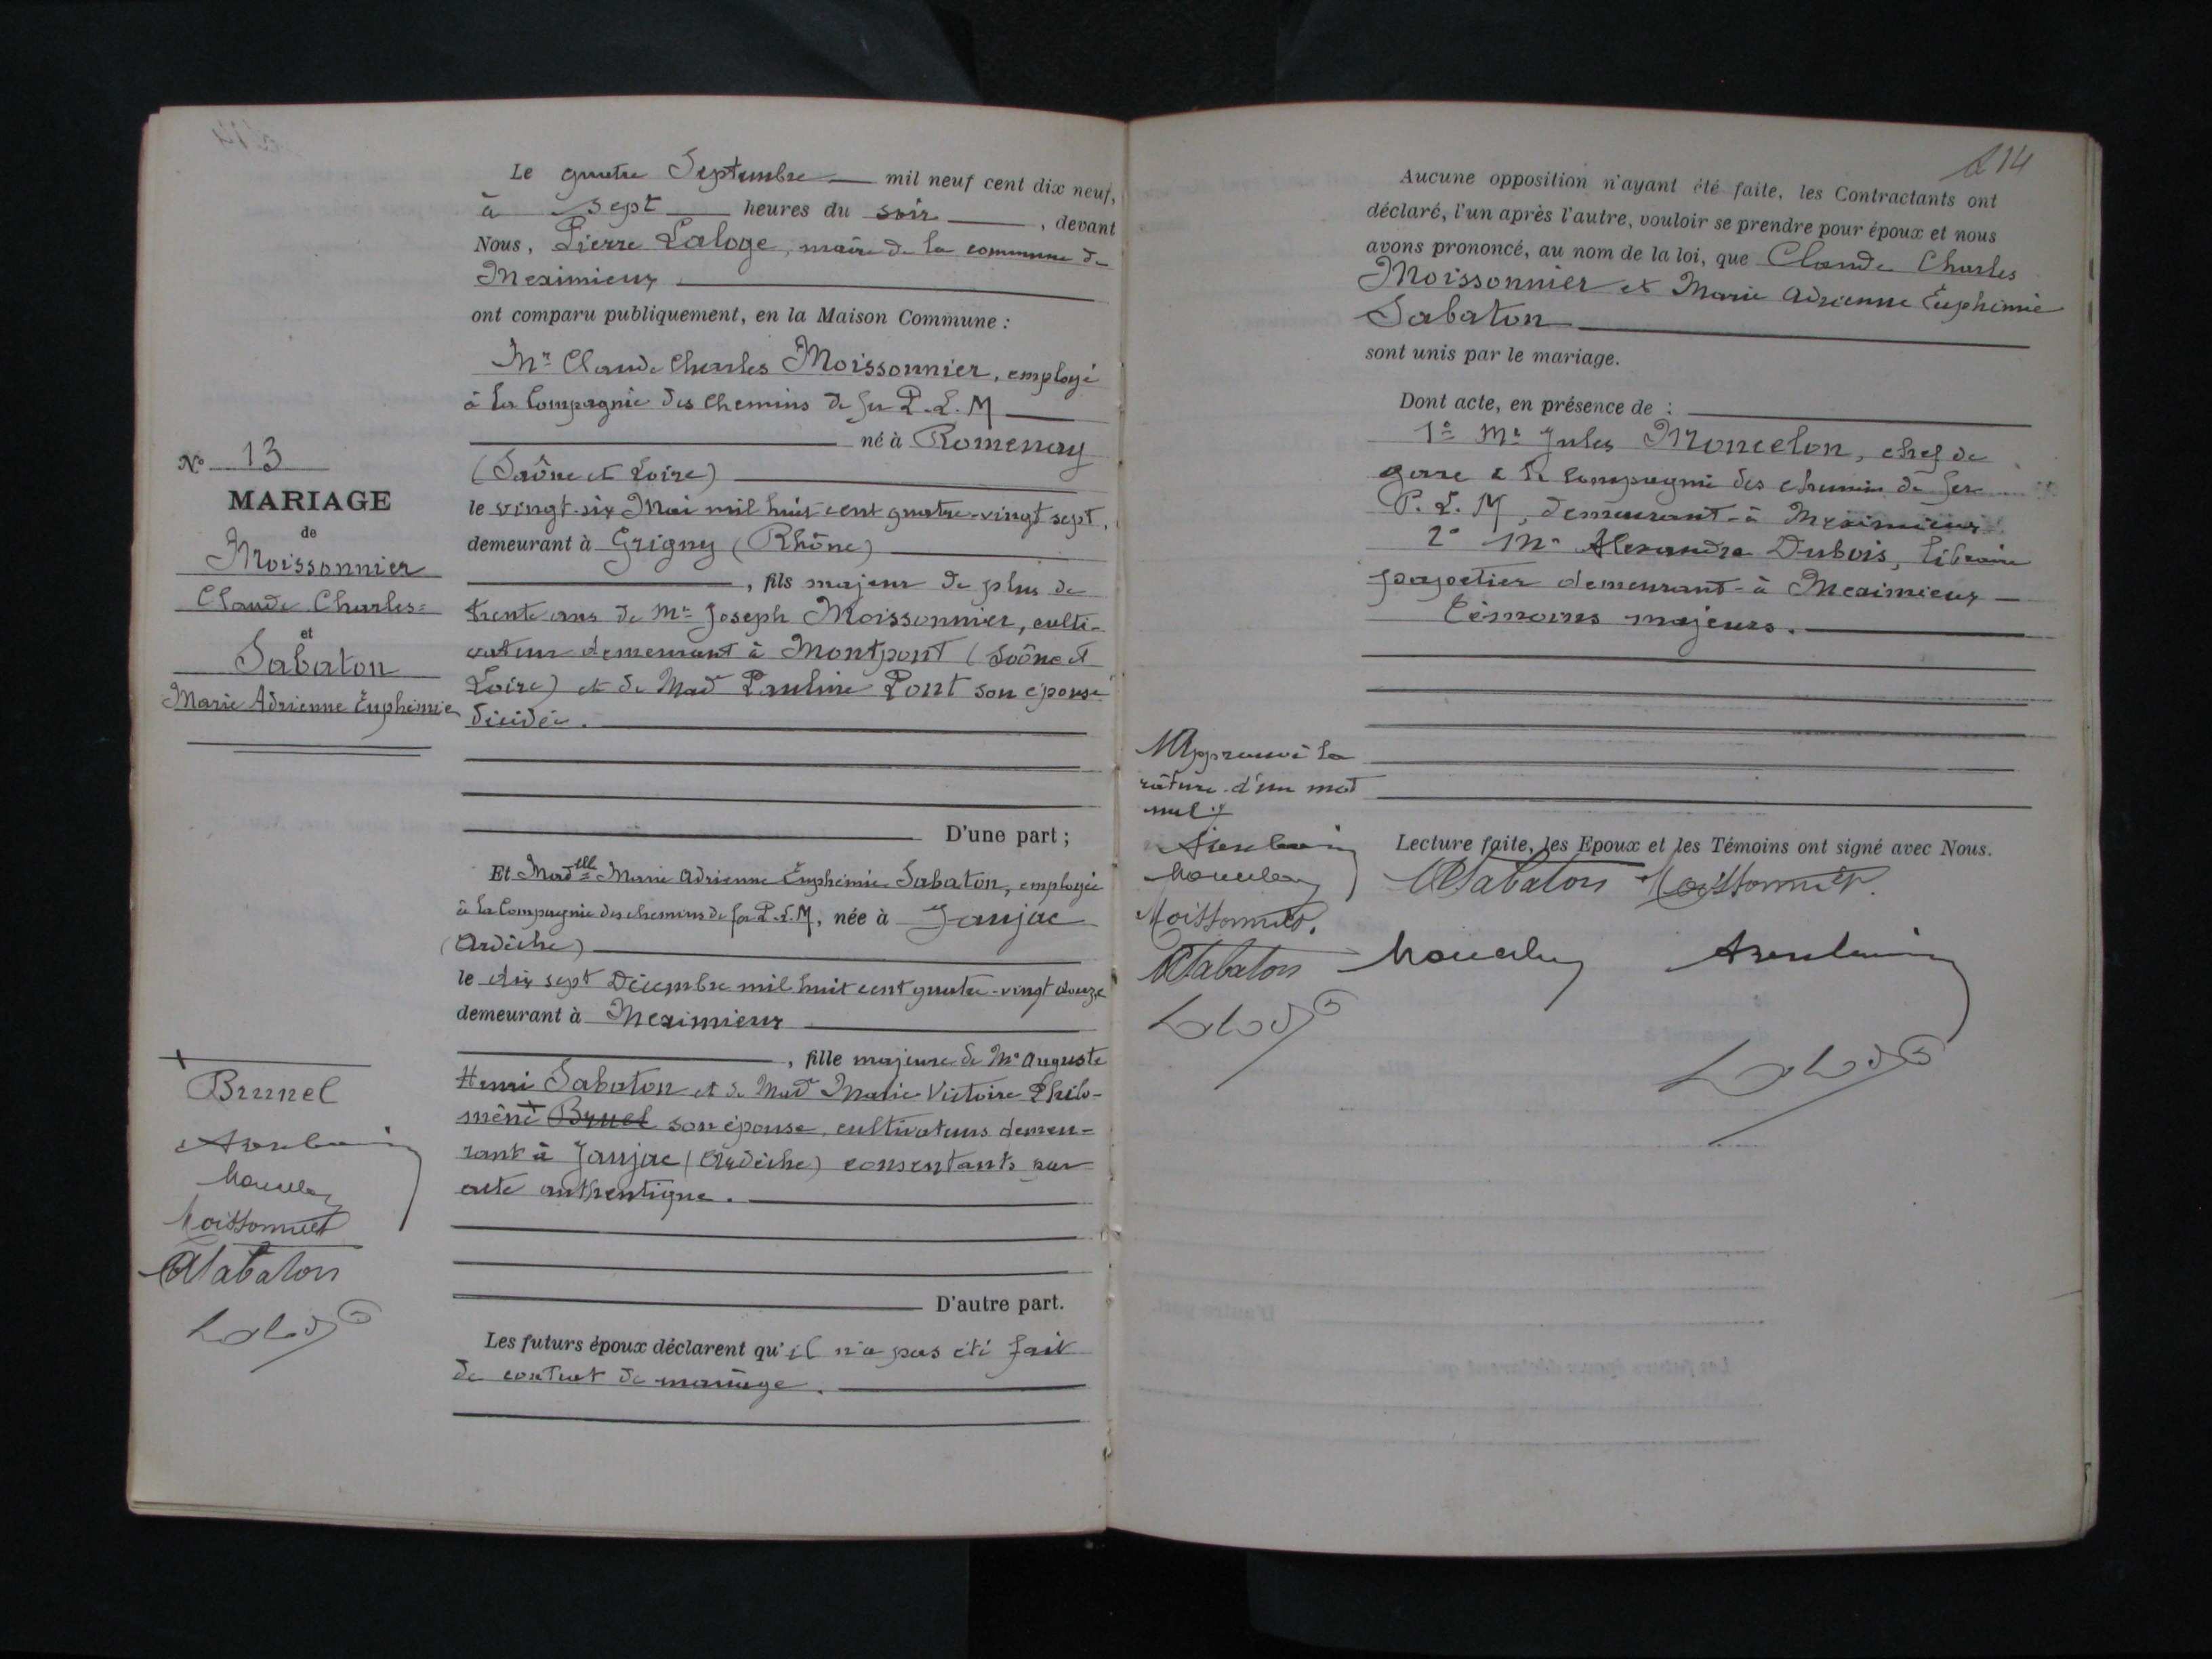 N° 13
MARIAGE
de
Moissonnier
Claude Charles
et
Sabaton
Marie Adrienne Euphémie
Le quatre Septembre mil neuf cent dix neuf,
à sept heures du soir, devant
Nous, Pierre Laloge, maire de la commune de
Meximieux
ont comparu publiquement, en la Maison Commune :
Mr Claude Charles Moissonnier, employé
à la Compagnie des Chemins de fer P.L.M
né à Romenay
(Saône et Loire)
le vingt-six Mai mil huit cent quatre-vingt sept,
demeurant à Grigny (Rhône)
, fils majeur de plus de
trente ans de Mr Joseph Moissonnier, culti-
vateur demeurant à Montpont (Saône et
Loire) et de Mad Pauline Pont son épouse
décédée.
D'une part ;
Et Madelle Marie Adrienne Euphémie Sabaton, employée
à la Compagnie des chemins de fer P.L.M, née à Jaujac
(Ardèche)
le dix sept Décembre mil huit cent quatre-vingt douze
demeurant à Meximieux
, fille majeure de Mr Auguste
Henri Sabaton et de Mad Marie Victoire Philo-
mène + Bruel son épouse, cultivateurs demeu-
rant à Jaujac (Ardèche) consentants par
acte authentique.
D'autre part.
Les futurs époux déclarent qu'il n'a pas été fait
de contrat de mariage.
+
Brunel
Moncelon
Moissonnier
ASabaton
Laloge
214
Aucune opposition n'ayant été faite, les Contractants ont
déclaré, l'un après l'autre, vouloir se prendre pour époux et nous
avons prononcé, au nom de la loi, que Claude Charles
Moissonnier et Marie Adrienne Euphémie
Sabaton
sont unis par le mariage.
Dont acte, en présence de :
1° Mr Jules Moncelon, chef de
gare à la Compagnie des chemins de fer
P.L.M, demeurant à Meximieux
2° Mr Alexandre Dubois, libraire
papetier demeurant à Meximieux
témoins majeurs.
Approuvé la
rature d'un mot
nul
Moncelon
Moissonnier
ASabaton
Laloge
Lecture faite, les Epoux et les Témoins ont signé avec Nous.
ASabaton Moissonnier
Moncelon
Laloge